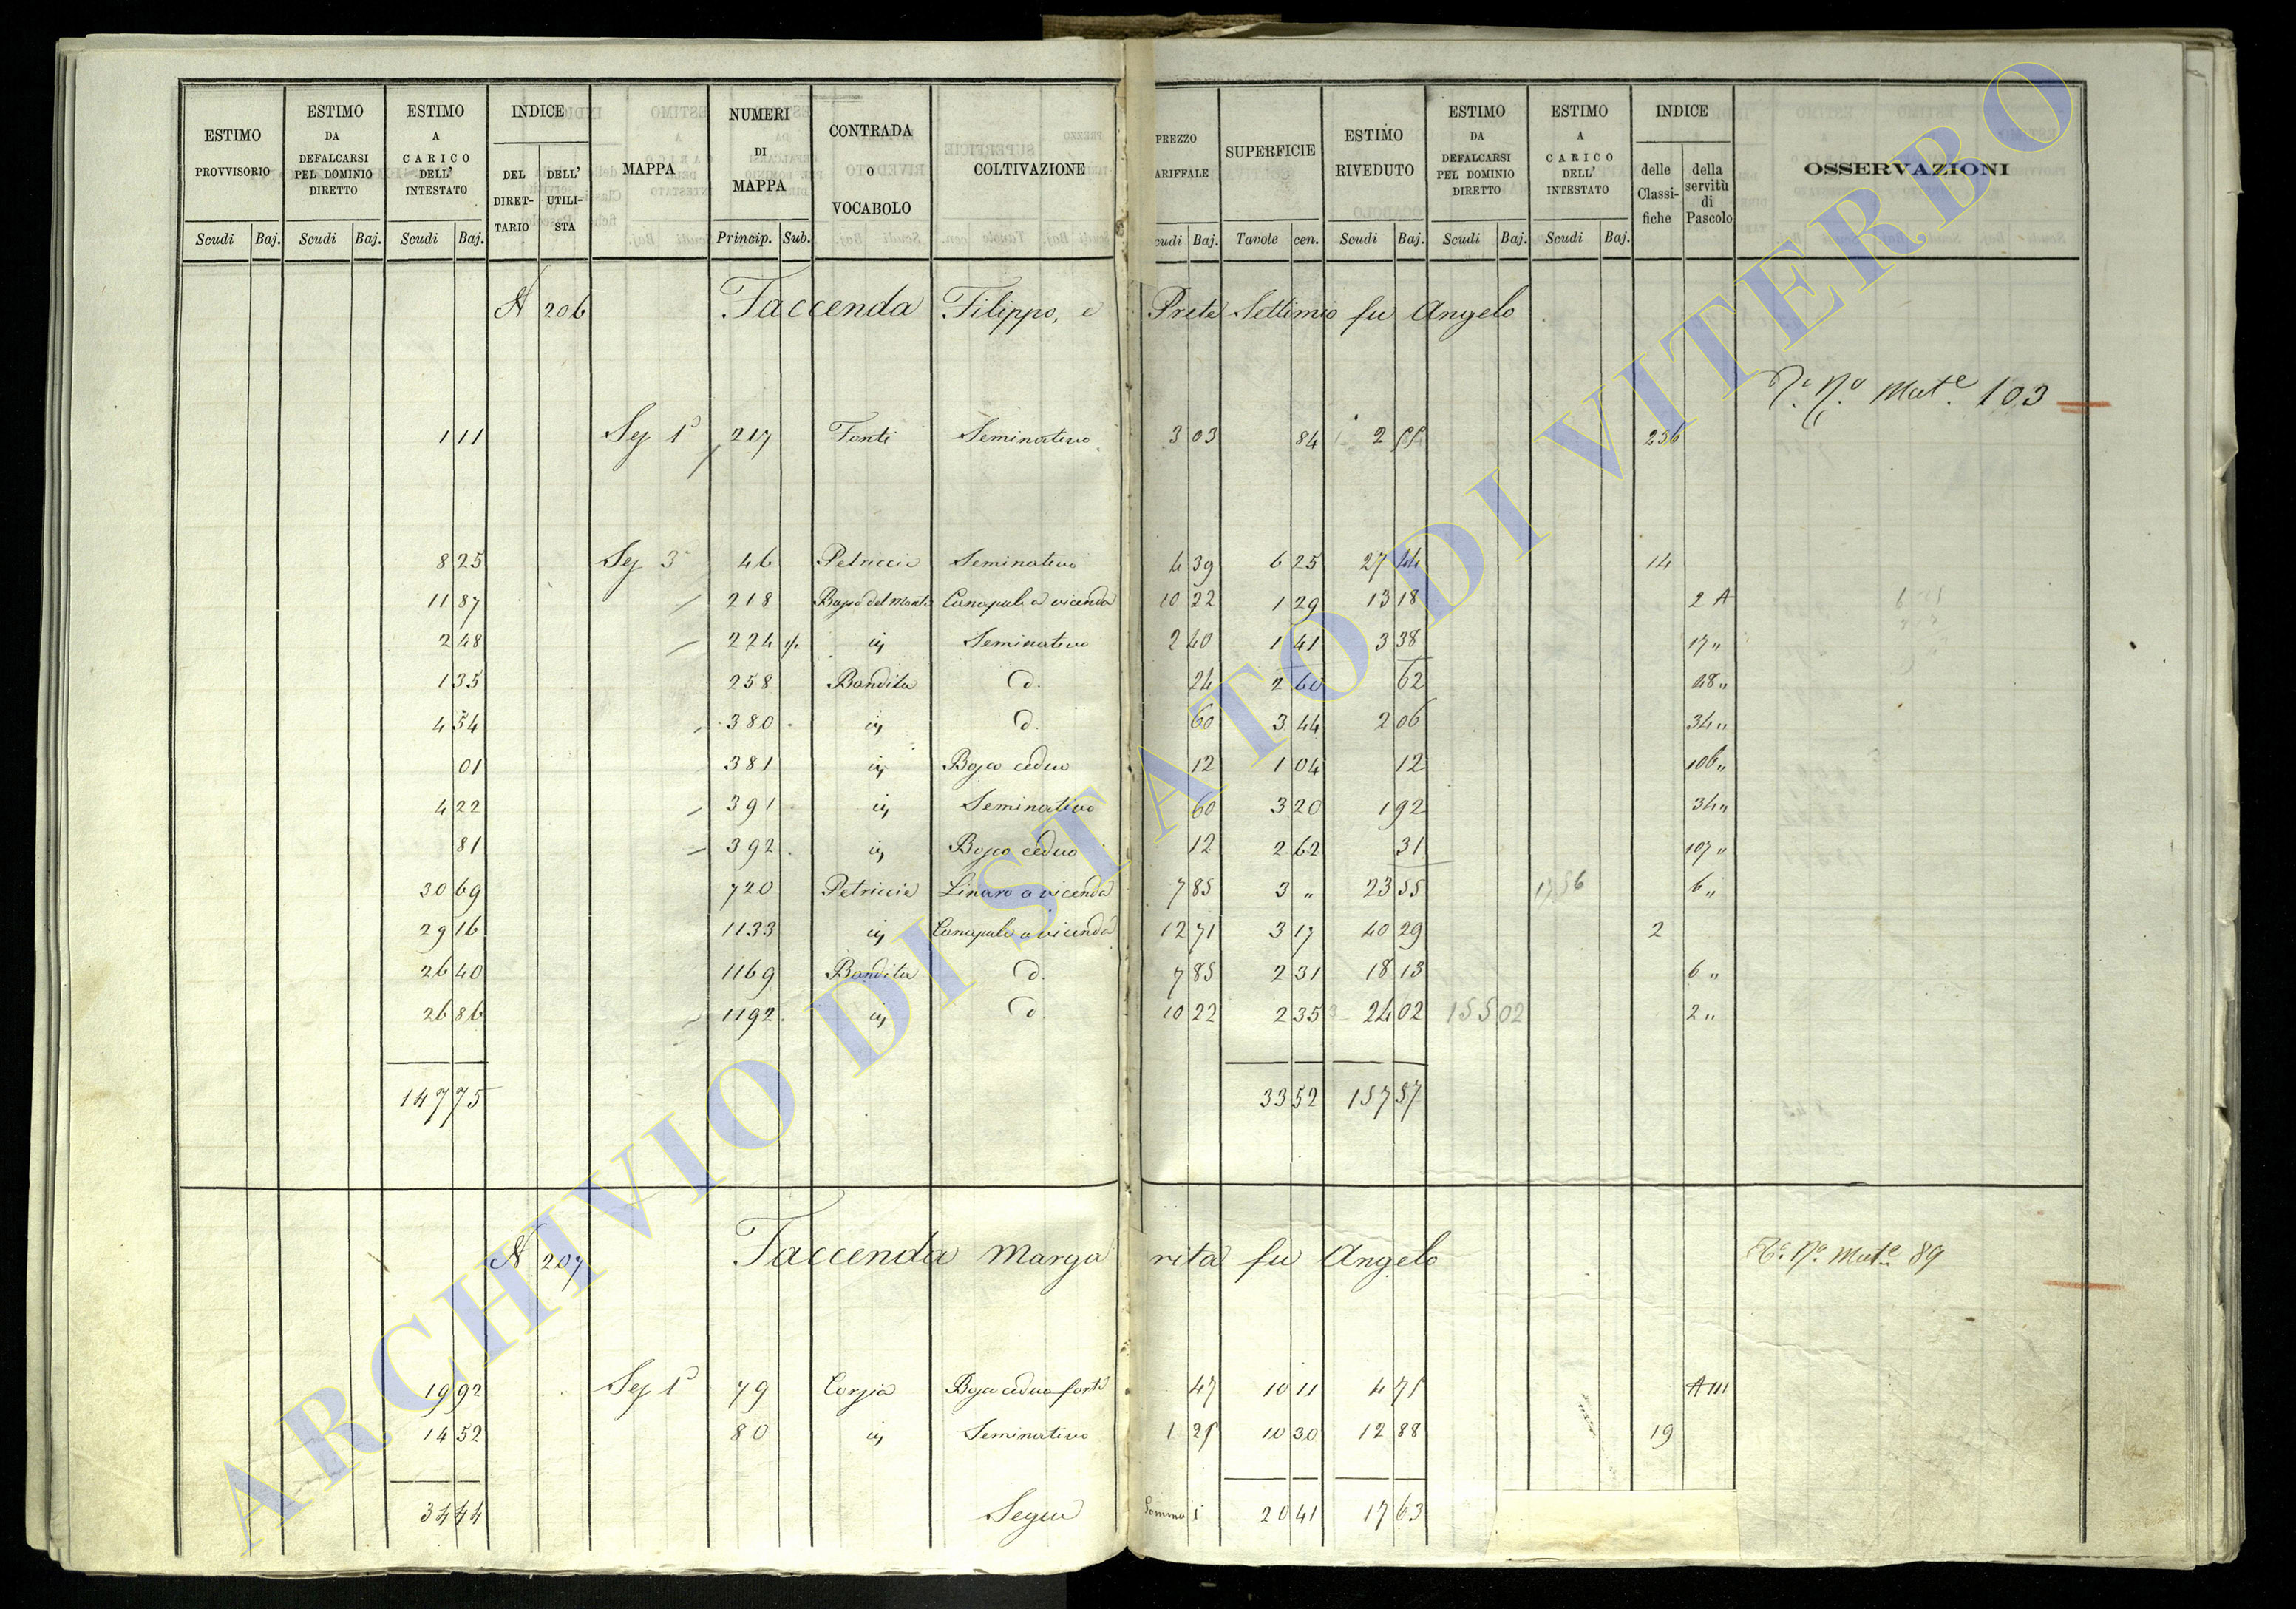 ESTIMO PROVVISORIO | ESTIMO DA DEFALCARSI PEL DOMINIO DIRETTO | ESTIMO A CARICO DELL' INTESTATO | INDICE | MAPPA | NUMERI DI MAPPA | CONTRADA O VOCABOLO | COLTIVAZIONE | PREZZO ARIFFALE | SUPERFICIE | ESTIMO RIVEDUTO | ESTIMO DA DEFALCARSI PEL DOMINIO DIRETTO | ESTIMO A CARICO DELL' INTESTATO | INDICE | OSSERVAZIONI
DEL DIRET-TARIO | DELL' UTILI-STA | delle Classi-fiche | della servitù di Pascolo
Scudi | Baj. | Scudi | Baj. | Scudi | Baj. | Princip. | Sub. | cudi | Baj. | Tavole | cen. | Scudi | Baj. | Scudi | Baj. | Scudi | Baj.
N 206 Taccenda Filippo, e Prete Settimio fu Angelo
Mate. 103
1 11 Sez 1a 217 Fonti Seminativo 3 03 84 2 55 256
8 25 Sez 3a 46 Petriccie Seminativo 4 39 6 25 27 44 14
11 87 218 del Monte Canapule a vicenda 10 22 1 29 13 18 2 A
2 48 224 1/2 id Seminativo 2 40 1 41 3 38 17 "
1 35 258 Bandita d. 24 2 60 62 48 "
4 54 380 id d. 60 3 44 2 06 34 "
01 381 id Bosco ceduo 12 1 04 12 106 "
4 22 391 id Seminativo 60 3 20 1 92 34 "
81 392 id Bosco ceduo 12 2 62 31 107 "
30 69 720 Petriccie Linaro a vicenda 7 85 3 " 23 55 17 56 6 "
29 16 1133 id Canapule a vicenda 12 71 3 17 40 29 2
26 40 1169 Bandita d. 7 85 2 31 18 13 6 "
26 86 1192 id d. 10 22 2 35 24 02 155 02 2 "
147 75 33 52 157 57
N 207 Taccenda Margarita fu Angelo
Mate 89
19 92 Sez 1a 79 Corgia Bosco ceduo forte 47 10 11 4 75 A 111
14 52 80 id Seminativo 1 25 10 30 12 88 19
34 44 Segue Somma 20 41 17 63
ARCHIVIO DI STATO DI VITERBO